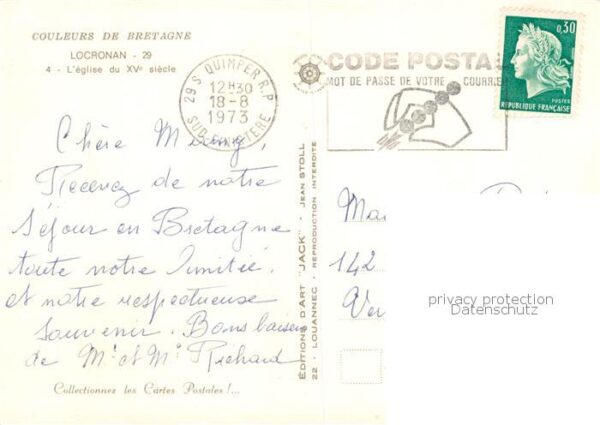 COULEURS DE BRETAGNE
LOCRONAN - 29
4 - L'église du XVe siècle
29 S QUIMPER R.P.
12H30
18-8
1973
SUD-FINISTERE
CODE POSTAL
MOT DE PASSE DE VOTRE COURRIER
0,30
POSTES
REPUBLIQUE FRANÇAISE
Chère
Recevez de notre
Séjour en Bretagne
toute notre Amitié.
et notre respectueux
Souvenir. Bons baisers
de Mr et Me Richard
Collectionnez les Cartes Postales !...
ÉDITIONS D'ART "JACK" - JEAN STOLL
22 - LOUANNEC - REPRODUCTION INTERDITE
Ma
142
Ver
privacy protection
Datenschutz